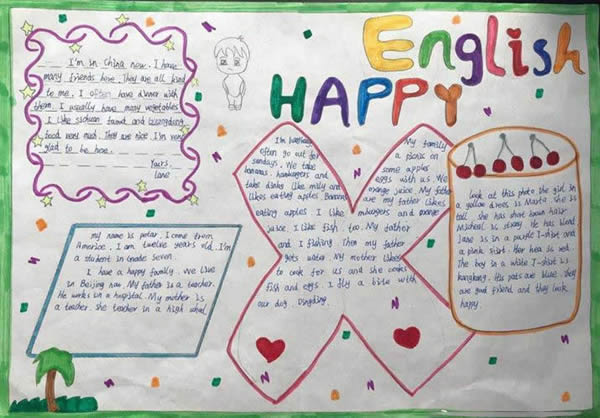 English
HAPPY
I'm in China now. I have
many friends here. They are all kind
to me. I often have dinner with
them. I usually have many vegetables.
I like sichuan and
food very much. They are nice. I'm very
glad to be here.
Yours,
Jane
my name is peter. I come from
America. I am twelve years old. I'm
a student in Grade seven.
I have a happy family. We live
in Beijing now. My father is a teacher.
He works in a hospital. My mother is
a teacher. she teacher in a high
I'm
often go out for
sundays. We take
bananas, hambergers and
take dinks like milk and
likes eating apples
eating apples. I like
juice. I like fish too. My father
and I fishing. Then my father
gets water. My mother likes
to cook for us and she cooks
fish and eggs. I fly a bite with
our dog. Dingding.
My family
a picnic on
some apples
eggs with us. We
orange juice. My father
are my father likes
hambergers and orange
Look at this photo the girl in
a yellow dress is Maria. she is
tall. she has short brown hair
Micheal is strong. He has blond
Jane is in a purple T-shirt and
a pink skirt. Her hear is red.
The boy in a white T-shirt is
kangkang. His pants are blue. They
are good friend and they look
happy.